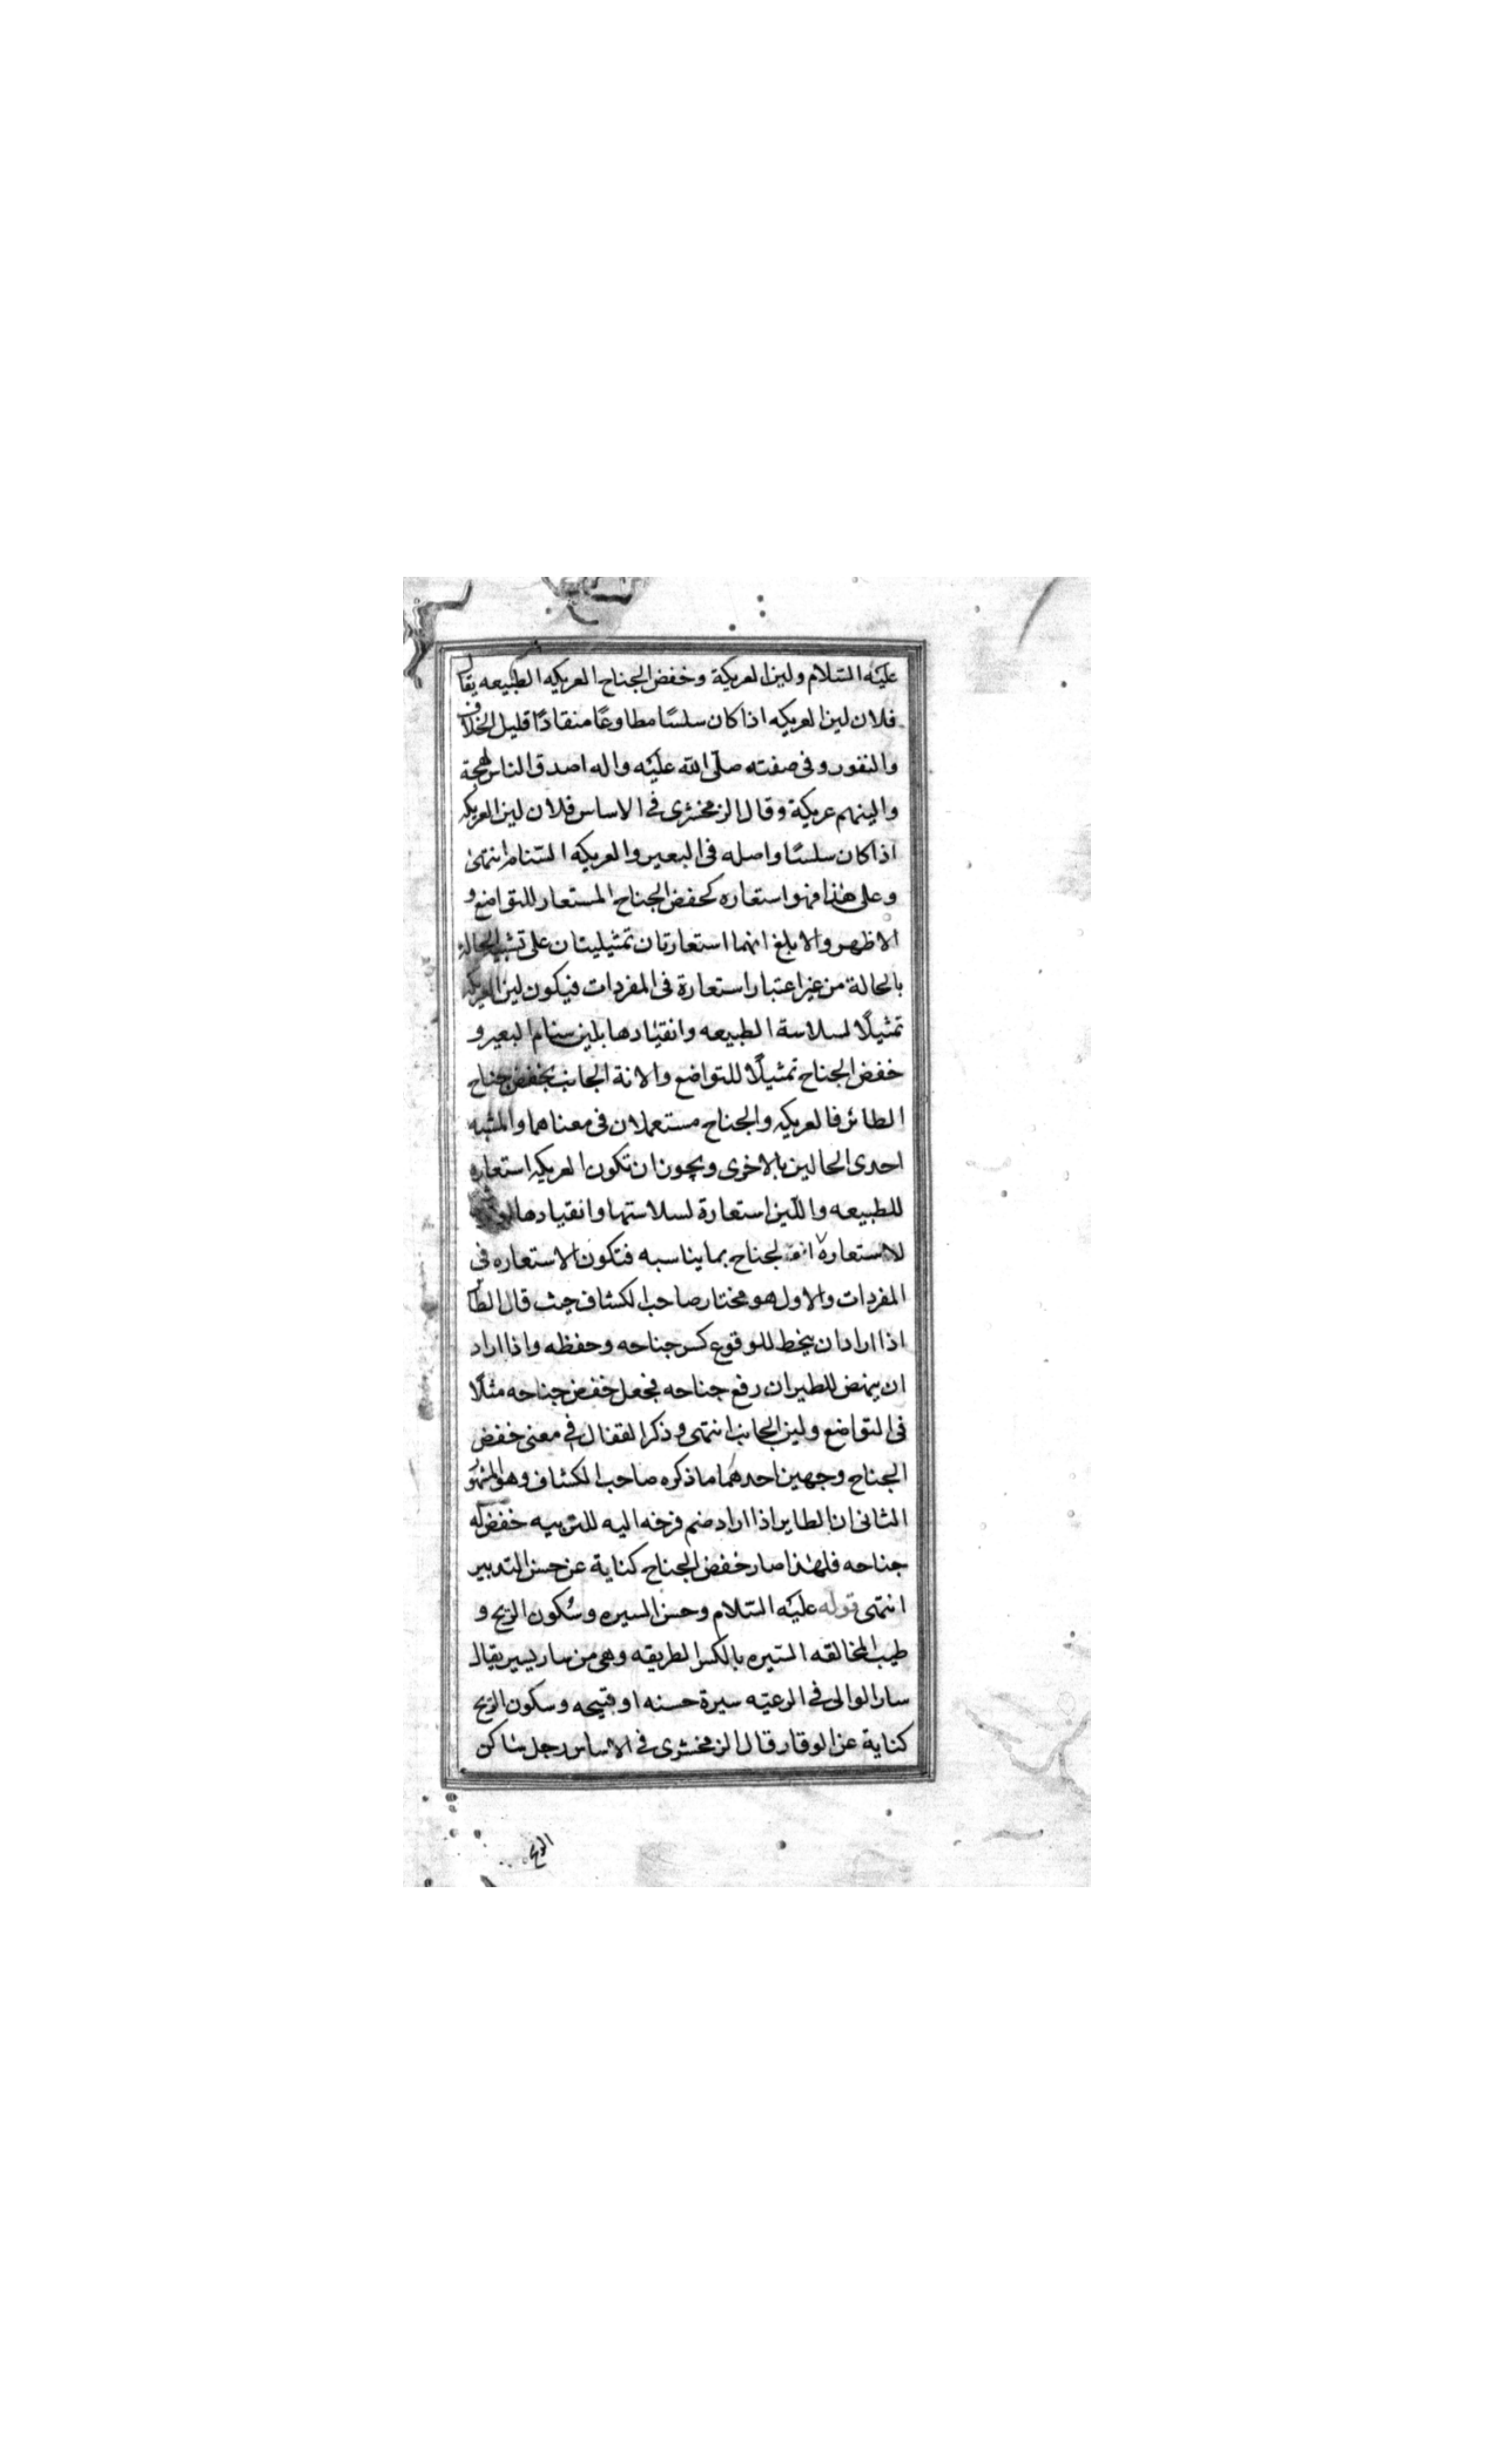 عليه السلام ولين العريكة وخفض الجناح العريكه الطبيعه يقال
فلان لين العريكه اذا كان سلسًا مطاوعًا منقادًا قليل الخلاف
والنفور وفى صفته صلّى الله عليه واله اصدق الناس لهجة
والينهم عريكة وقال الزمخشرى في الاساس فلان لين العريكه
اذا كان سلسًا واصله فى البعير والعريكه السّنام انتهى
وعلى هذا فهو استعاره كخفض الجناح المستعار للتواضع و
الاظهر والابلغ انهما استعارتان تمثيليتان على تشبيه الحالة
بالحالة من غير اعتبار استعارة فى المفردات فيكون لين العريكه
تمثيلًا لسلاسة الطبيعه وانقيادها بلين سنام البعير و
خفض الجناح تمثيلًا للتواضع والانة الجانب بخفض جناح
الطائر فالعريكه والجناح مستعملان فى معناهما والمشبه
احدى الحالين بالاخرى ويجوز ان تكون العريكه استعاره
للطبيعه واللّين استعارة لسلاستها وانقيادها
لاستعارة الجناح بما يناسبه فتكون الاستعاره فى
المفردات والاول هو مختار صاحب الكشاف حيث قال الطائر
اذا اراد ان ينحط للوقوع كسر جناحه وخفظه واذا اراد
ان ينهض للطيران رفع جناحه فجعل خفض جناحه مثلًا
فى التواضع ولين الجانب انتهى وذكر القفال في معنى خفض
الجناح وجهين احدهما ما ذكره صاحب الكشاف وهو المشهور
الثانى ان الطاير اذا اراد ضم فرخه اليه للتربيه خفض له
جناحه فلهذا صار خفض الجناح كناية عن حسن التدبير
انتهى قوله عليه السّلام وحسن السيره وسُكون الريح و
طيب المخالقه السّيره بالكسر الطريقه وهى من سار يسير يقال
سار الوالى في الرعيّه سيرة حسنه او قبيحه وسكون الريح
كناية عن الوقار قال الزمخشرى في الاساس رجل ساكن
الريح